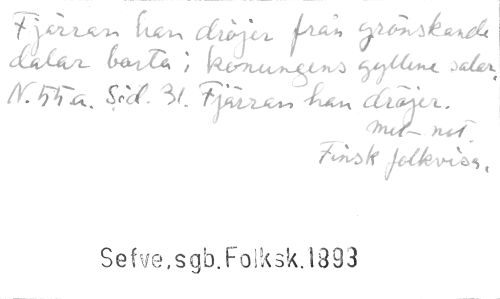 Fjärran han dröjer från grönskande
dalar borta i konungens gyllene salar.
N. 55a. Sid. 31. Fjärran han dröjer.
met not.
Finsk folkvisa.
Sefve, sgb. Folksk. 1893